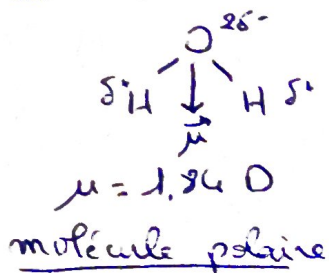 O 2δ-
δ+ H H δ+
μ
μ = 1,84 D
molécule polaire